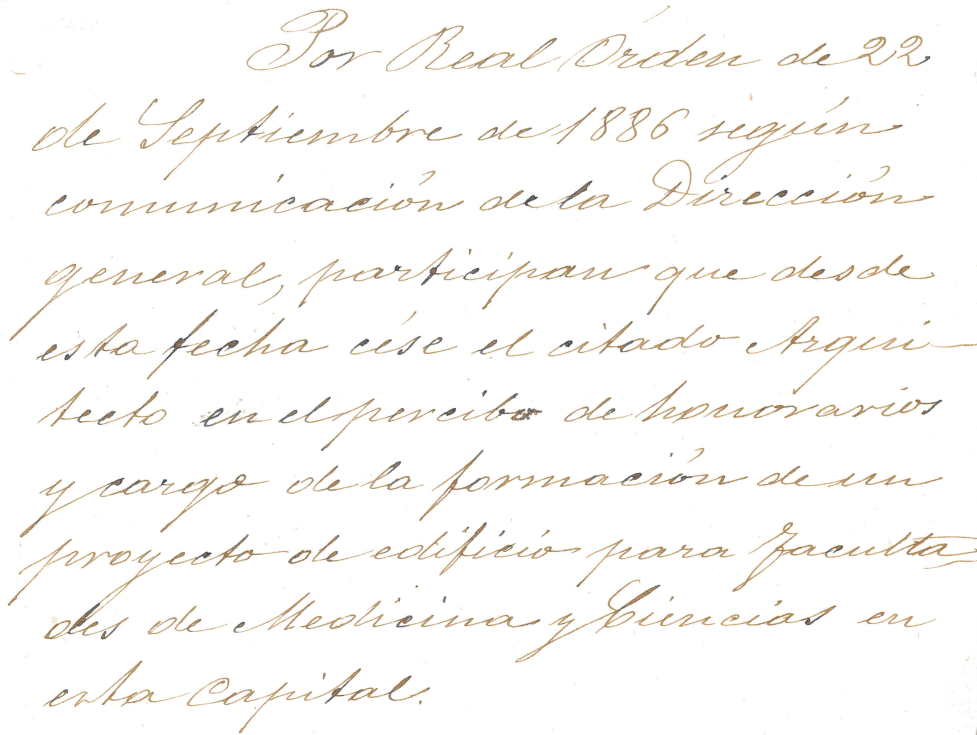 Por Real Orden de 22
de Septiembre de 1886 según
comunicación de la Dirección
general, participan que desde
esta fecha cése el citado Arqui-
tecto en el percibo de honorarios
y cargo de la formación de un
proyecto de edificio para Faculta-
des de Medicina y Ciencias en
esta Capital.